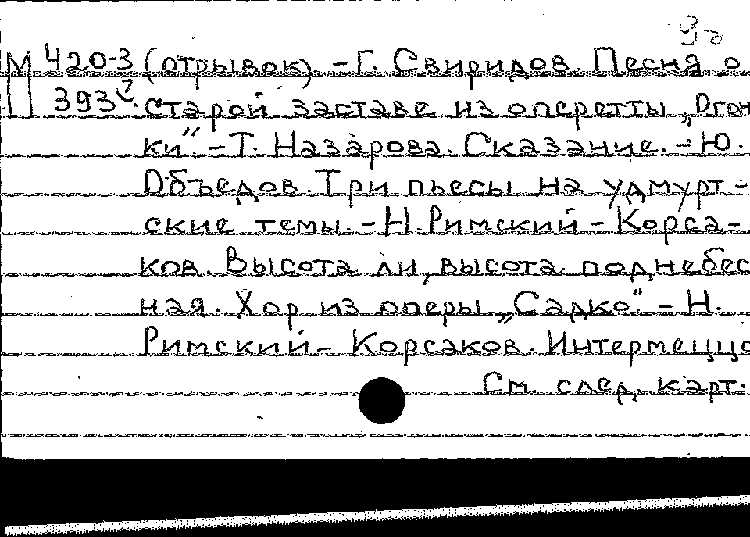 М 420-3 (отрывок). - Г. Свиридов. Песня о
393 старой заставе из оперетты „Огонь
ки". - Т. Назарова. Сказание. - Ю.
Объедов. Три пьесы на удмурт-
ские темы. - Н. Римский - Корса-
ков. Высота ли, высота поднебес
ная. Хор из оперы „Садко". - Н.
Римский - Корсаков. Интермеццо
См. след. карт.